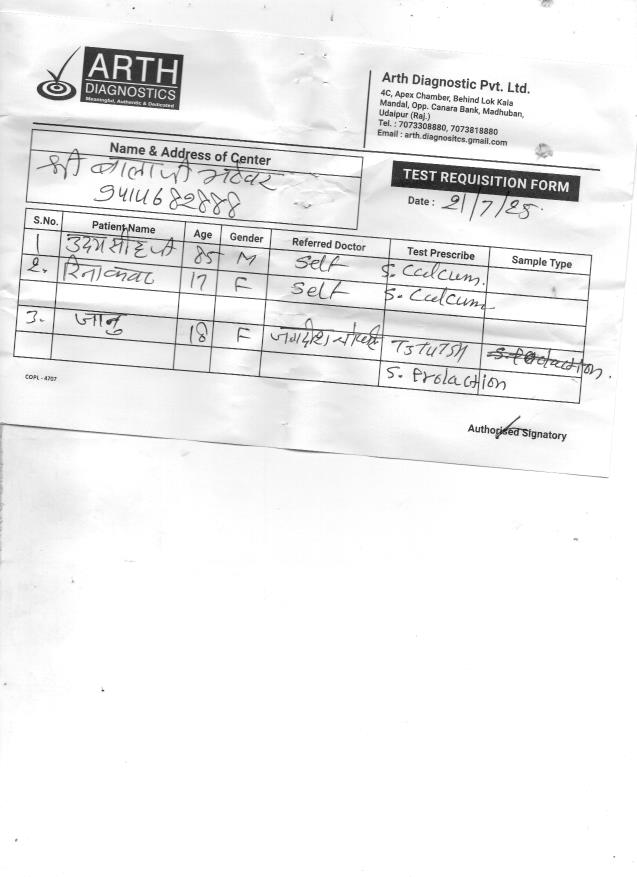 ARTH
DIAGNOSTICS
Meaningful, Authentic & Dedicated
Arth Diagnostic Pvt. Ltd.
4C, Apex Chamber, Behind Lok Kala
Mandal, Opp. Canara Bank, Madhuban,
Udaipur (Raj.)
Tel. : 7073308880, 7073818880
Email : arth.diagnositcs.gmail.com
Name & Address of Center
श्री बालाजी
TEST REQUISITION FORM
Date : 21/7/25
S.No. Patient Name Age Gender Referred Doctor Test Prescribe Sample Type
1 85 M Self S. Calcum.
2. 17 F Self S. Calcum
3. जानु 18 F T3T4TSH
S. Prolaction
COPL - 4707
Authorised Signatory